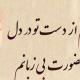 از دست تو در دل
ضورت بی زبانم